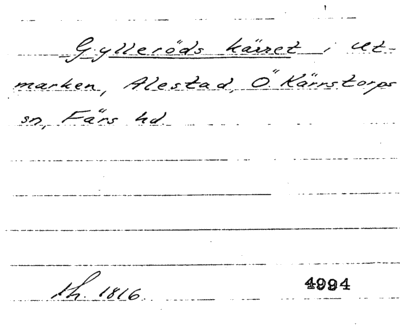 Gylleröds kärret i ut-
marken, Alestad, Ö Kärrstorps
sn, Färs hd.
sh. 1816. 4994